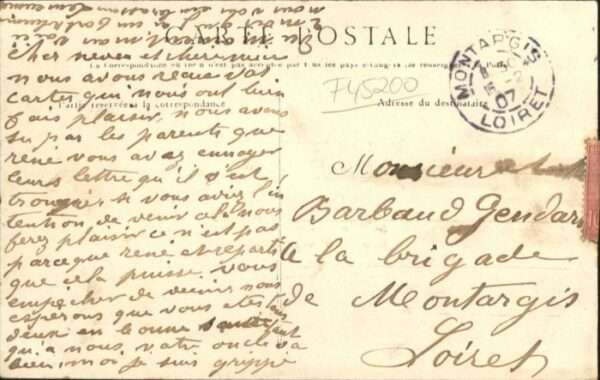 CARTE POSTALE
La Correspondance au recto n'est pas acceptée par tous les pays étrangers
Partie réservée à la correspondance
Adresse du destinataire
F45200
MONTARGIS
07
LOIRET
cher neveu et chere
nous avous recue vos
cartes qui nous ont bien
fais plaisir, nous avons
su par les parents que
rené vous avez envoyer
leurs lettre qu'il s'est
trouquer si vous aviez l'in
tention de venir cela nous
ferez plaisir ce n'est pas
parceque rené et reparti
que cela puisse vous
empecher de venir nous
esperons que vous etes tous
deux en bonne santé
qu'a nous, votre oncle va
bien, moi je suis grippé
Monsieur et
Barbaud Gendar
A la brigade
de Montargis
Loiret